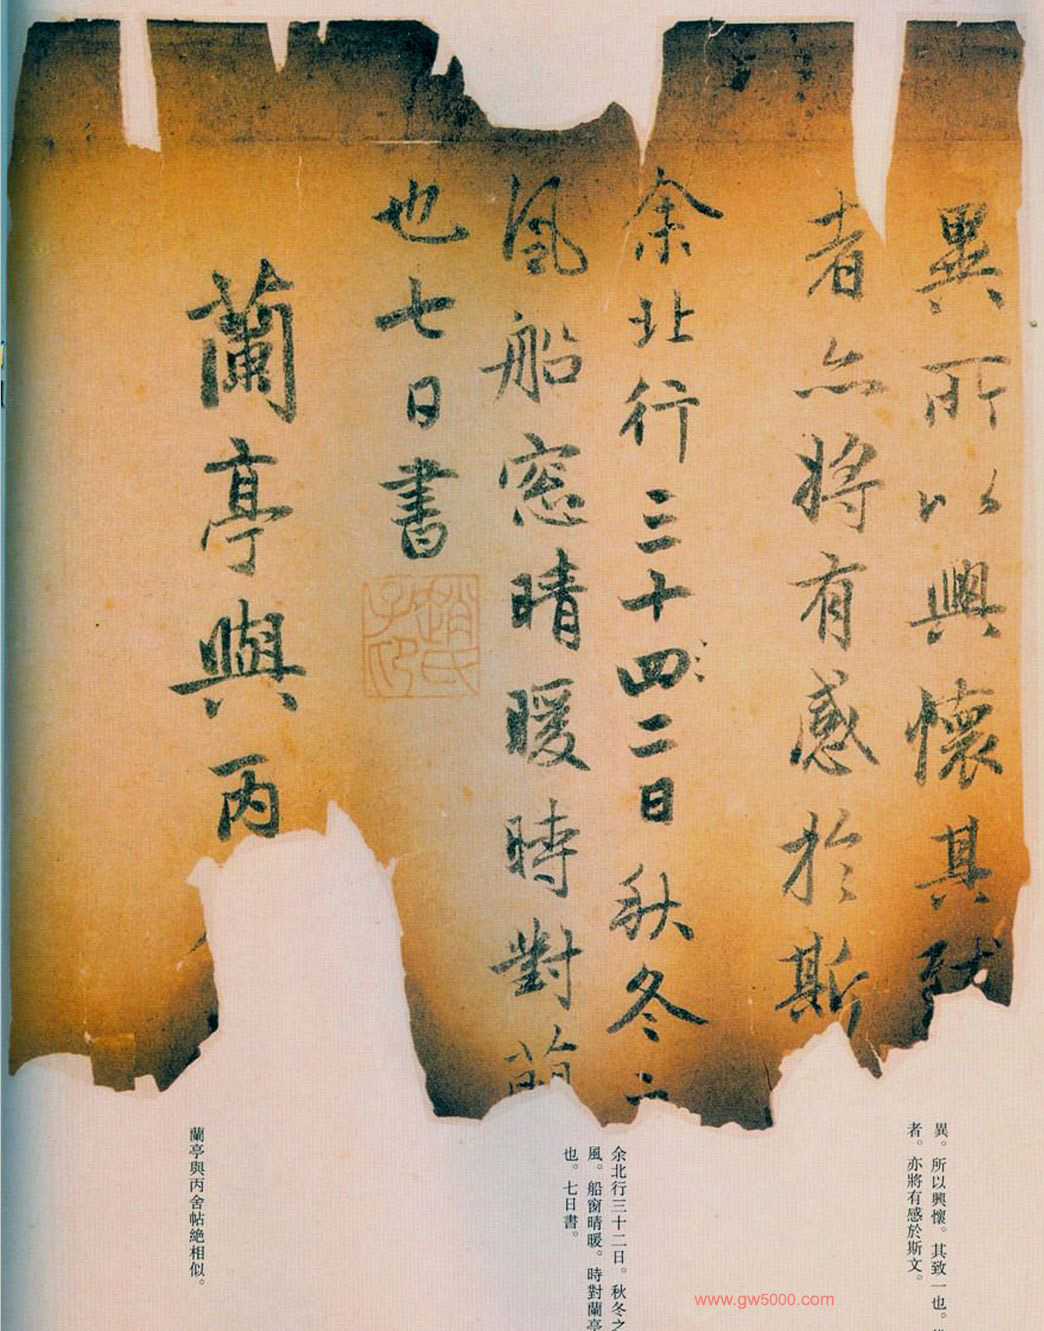 異所以興懷其致
者亦將有感於斯
余北行三十四二日秋冬
風船窓晴暖時對蘭
也七日書
趙氏子印
蘭亭與丙
異。所以興懷。其致一也。
者。亦將有感於斯文。
余北行三十二日。秋冬之
風。船窗晴暖。時對蘭亭
也。七日書。
蘭亭與丙舍帖絶相似。
www.gw5000.com